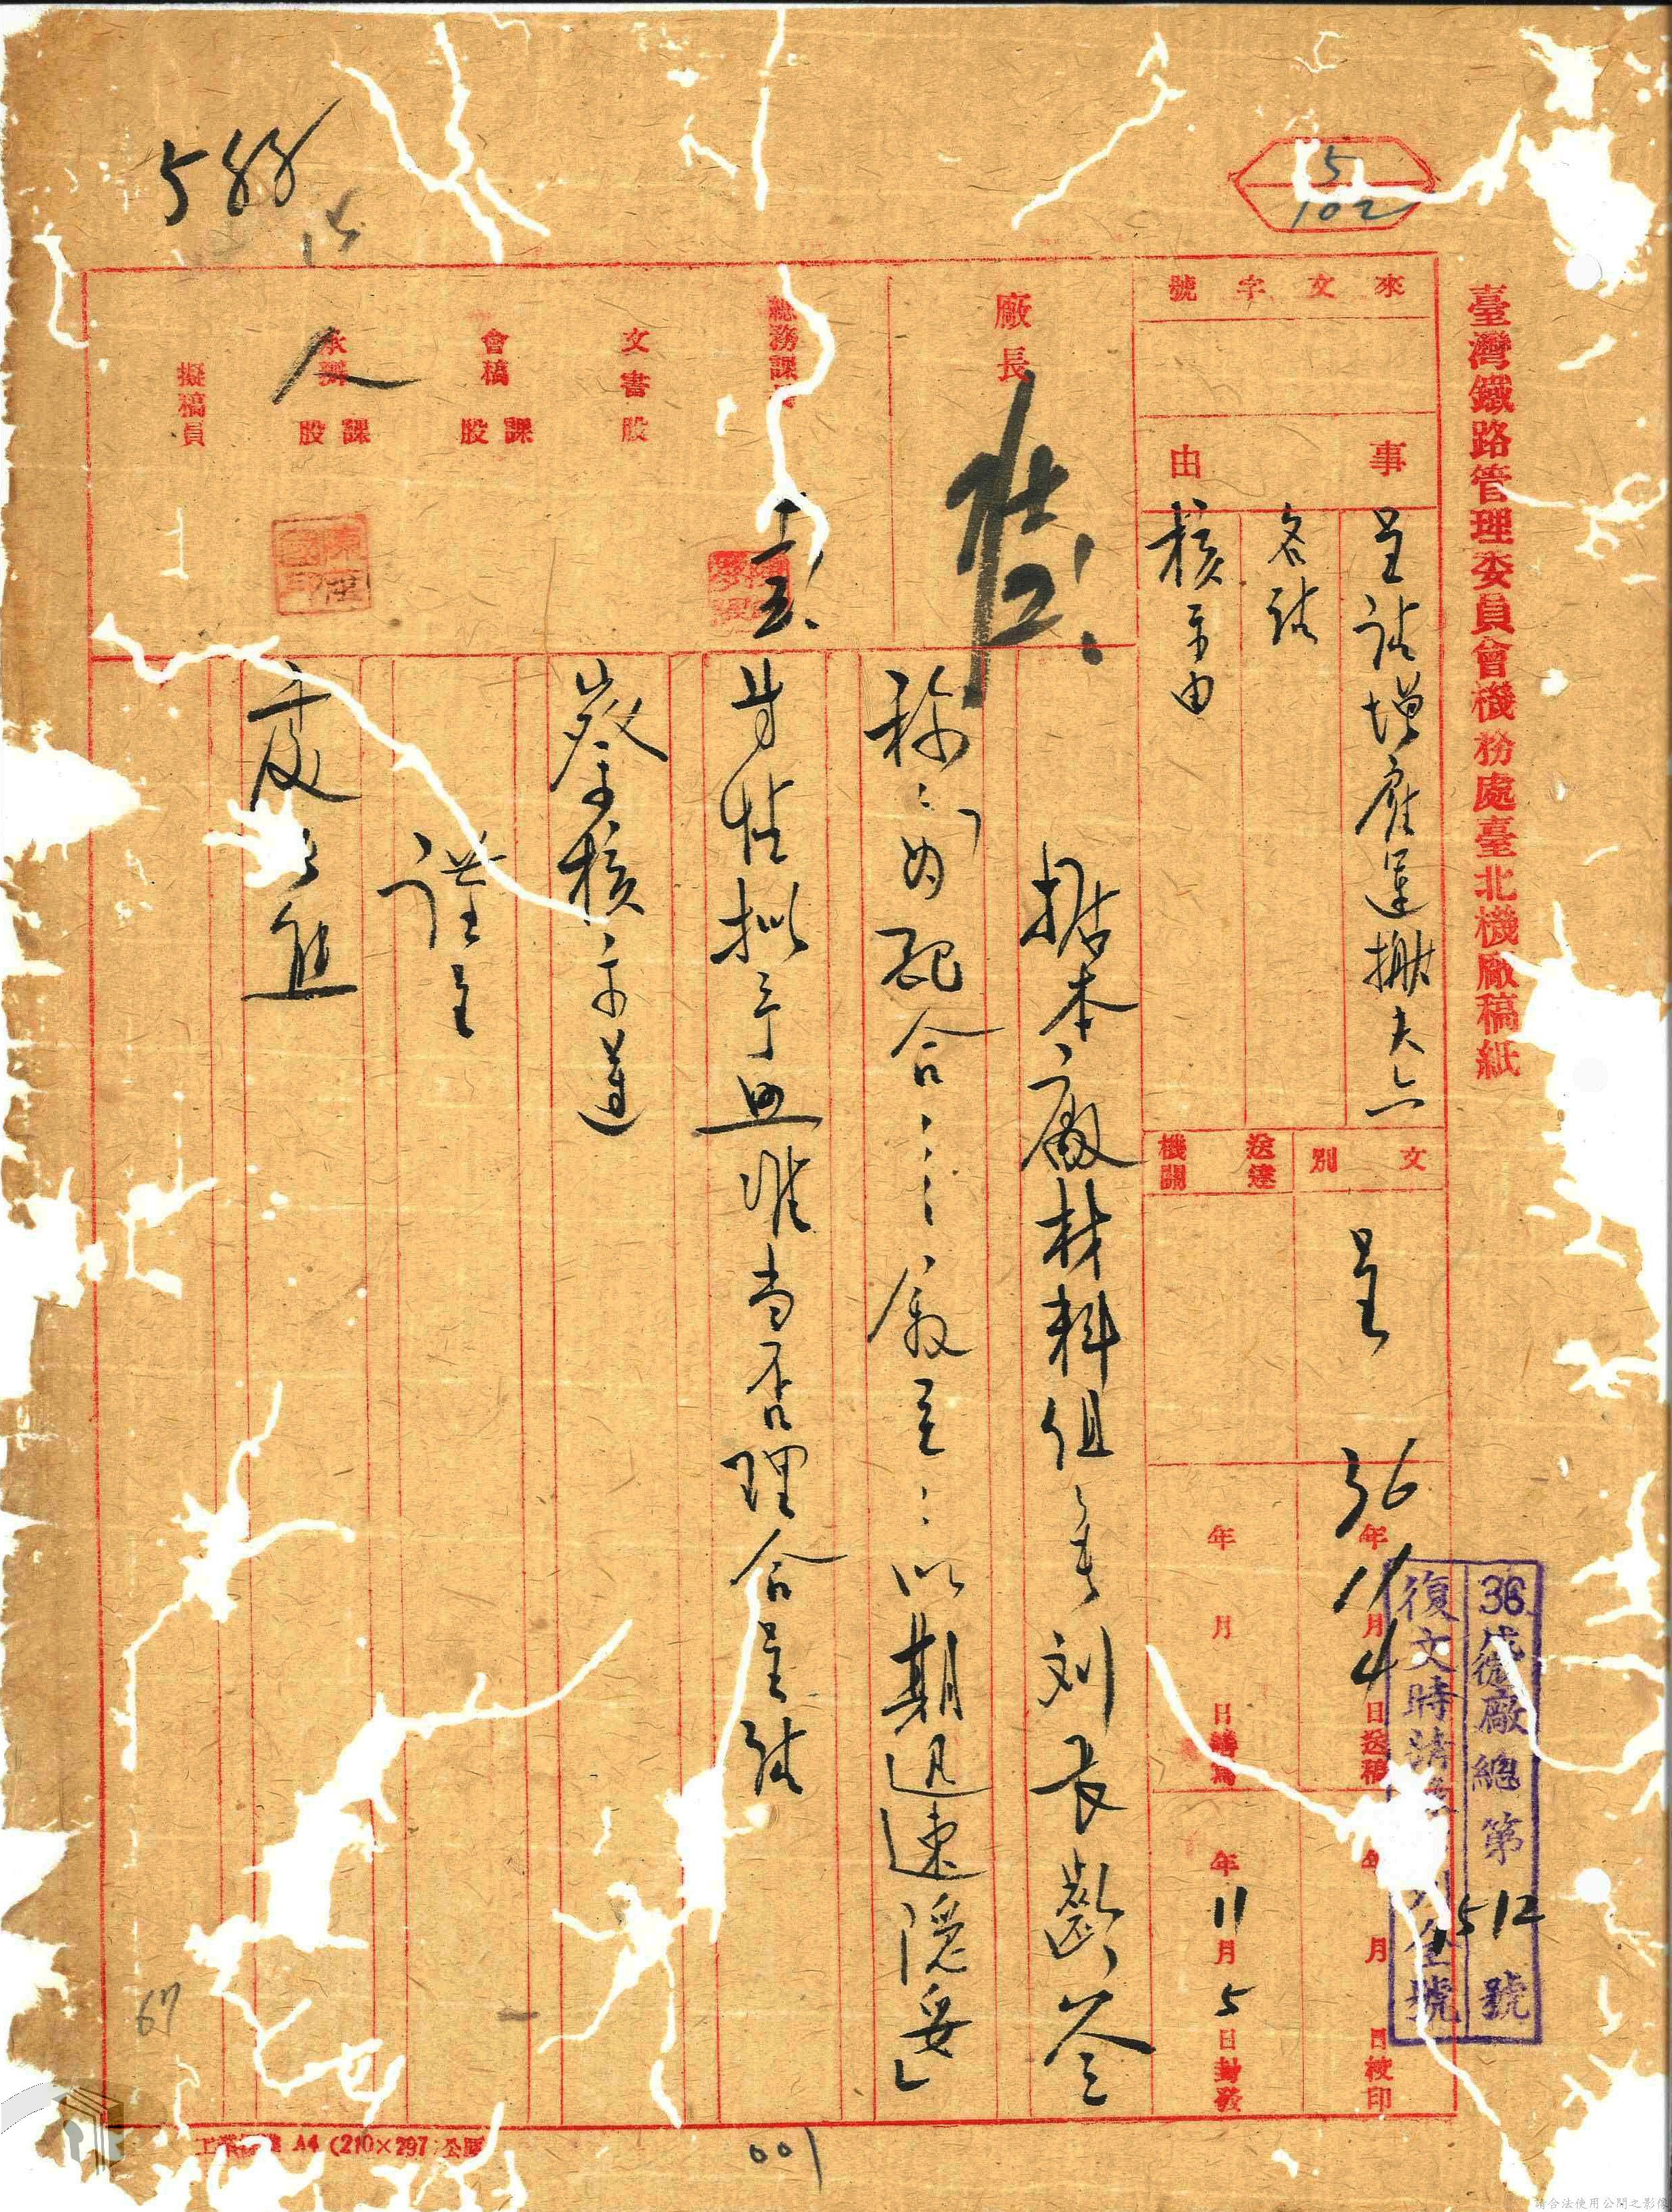 臺灣鐵路管理委員會機務處臺北機廠稿紙
5
102
588
來文字號
事由
呈請增雇運搬夫六
名請
核示由
文別
呈
送達機關
36年11月4日送稿
年月日繕寫
年月日校印
年11月5日封發
36
廠總第512號
復文時請
號
廠長
總務課
文書股
會稿
課股
承辦
課股
擬稿員
據本廠材料組主任刘長齡簽
称:「為配合……敘至:以期迅速隱妥」
等情擬予照准當否理合呈請
鑒核示遵
謹呈
處長
67
A4 (210×297公厘
001
請合法使用公開之影像